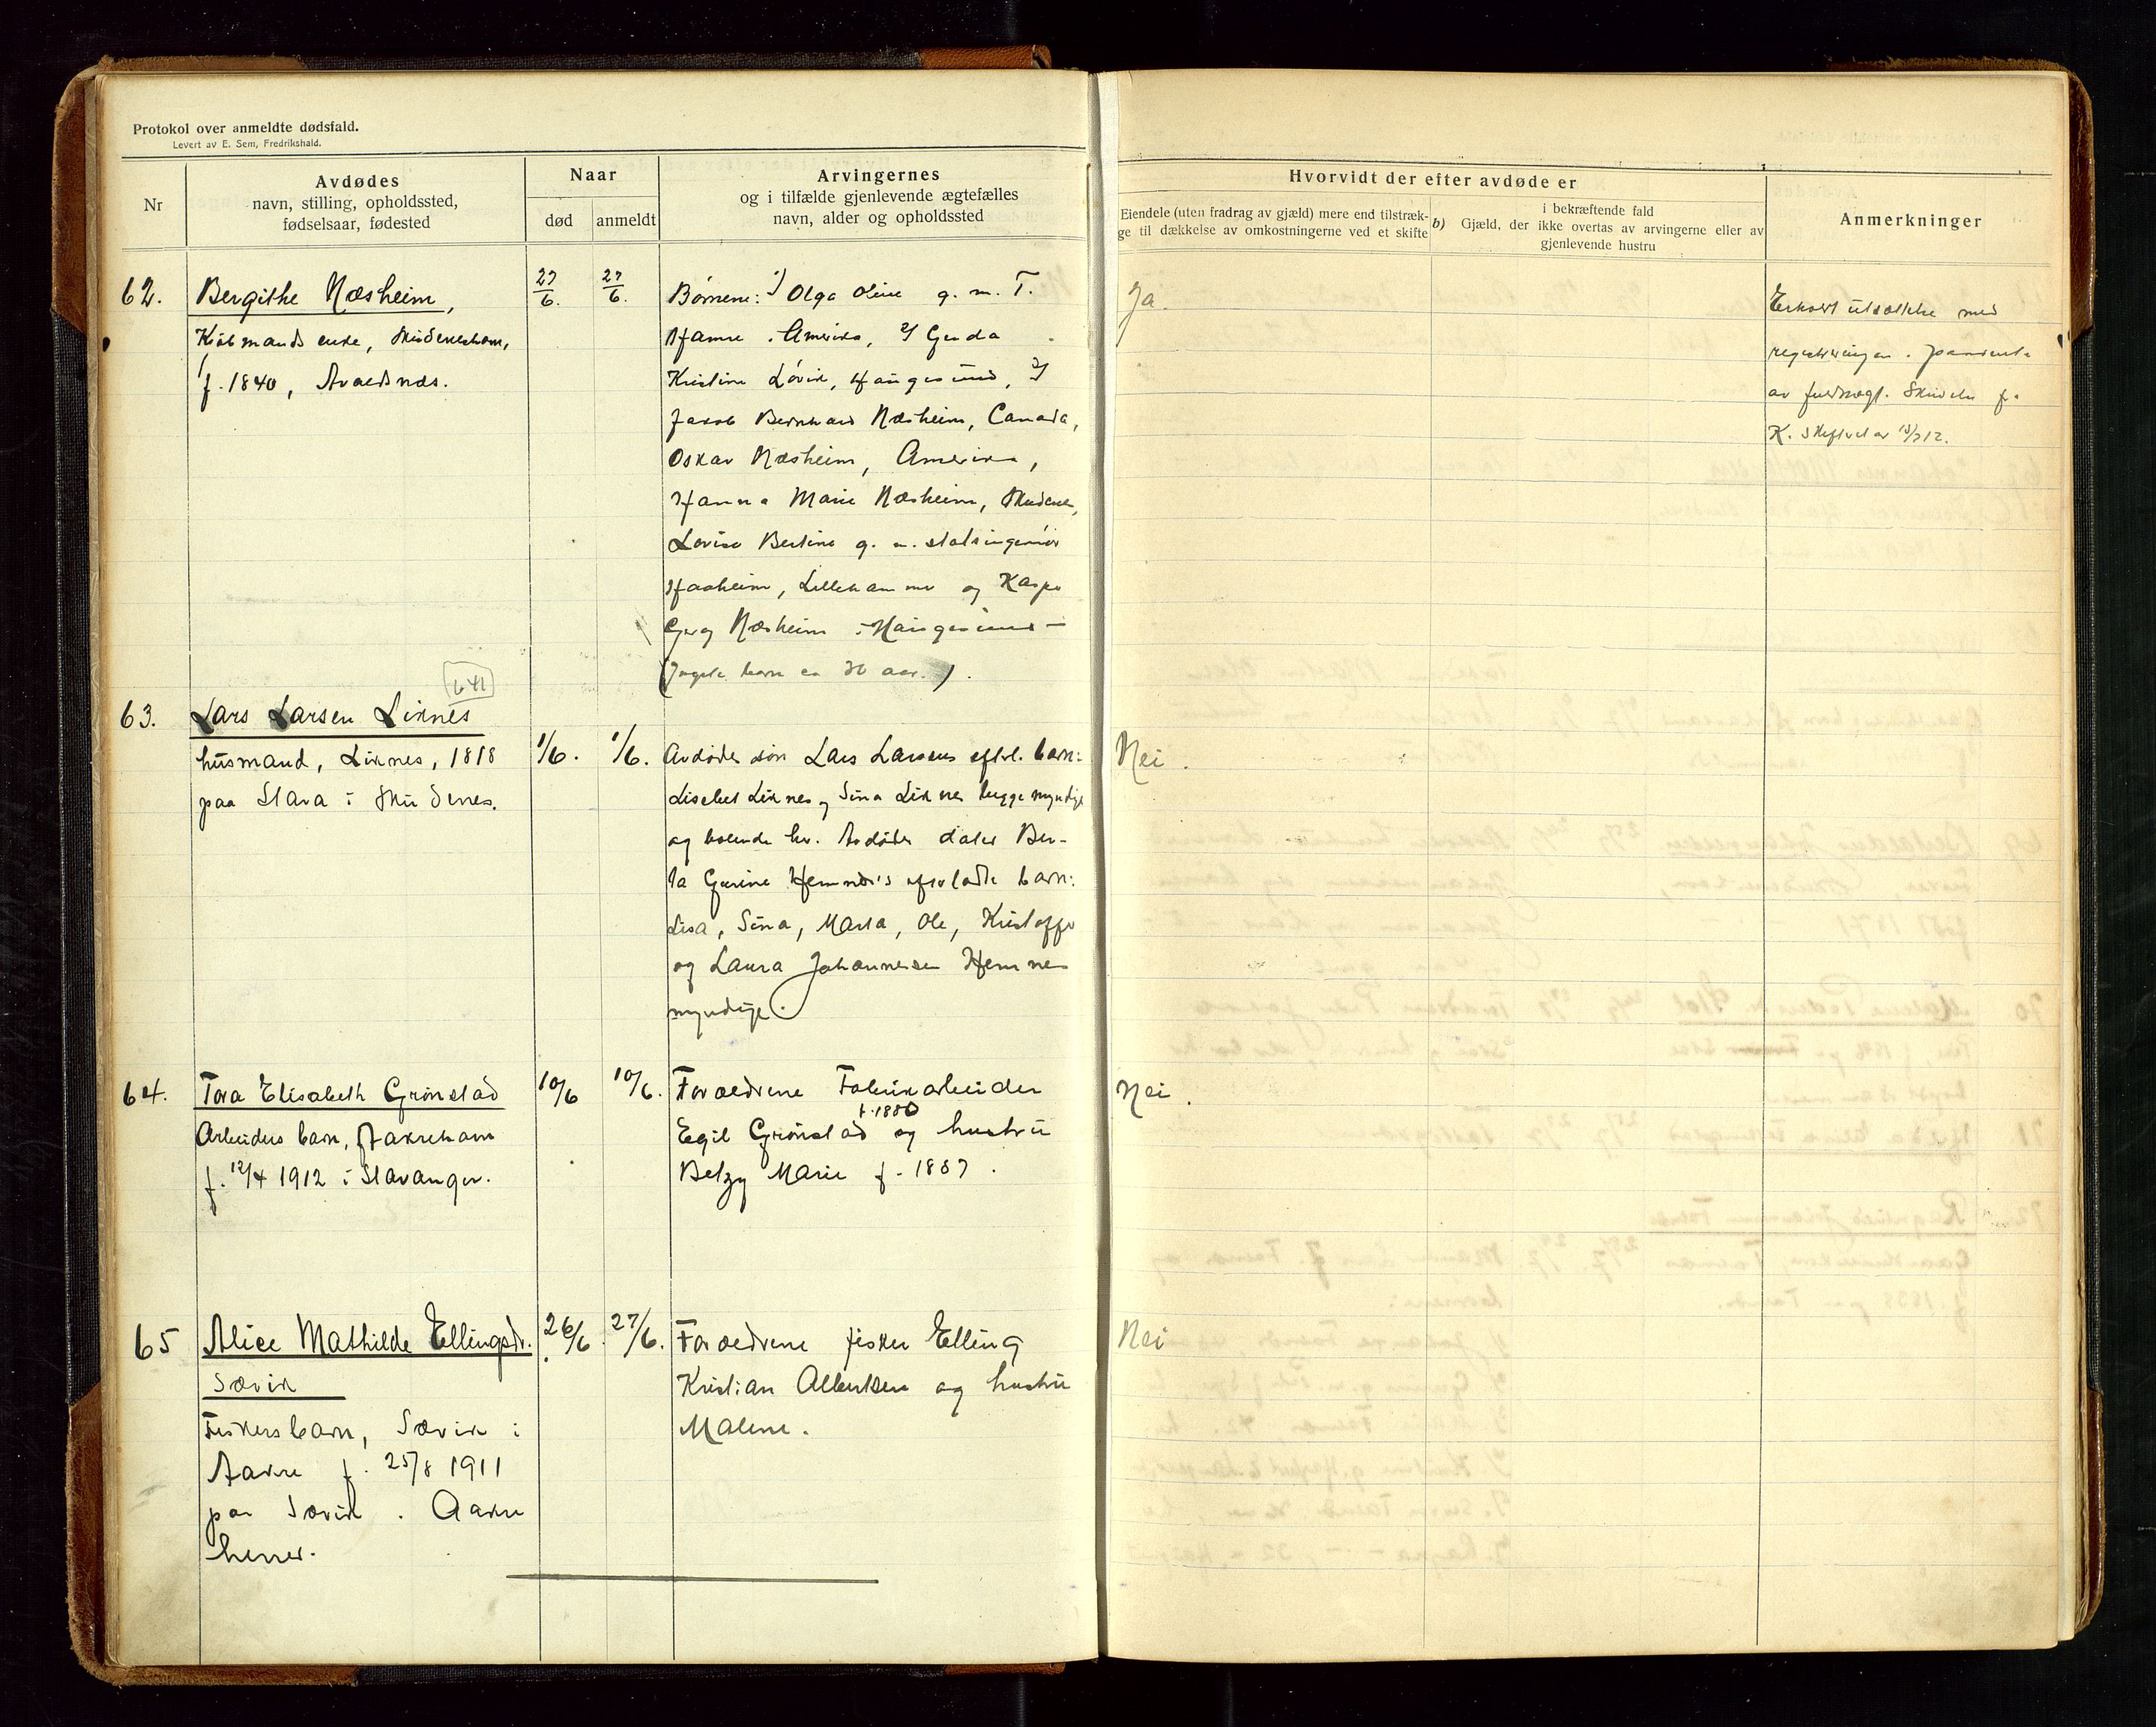 Protokol over anmeldte dødsfald.
Levert av E. Sem, Fredrikshald.
Nr
Avdødes
navn, stilling, opholdssted,
fødselsaar, fødested
Naar
død
anmeldt
Arvingernes
og i tilfælde gjenlevende ægtefælles
navn, alder og opholdssted
Hvorvidt der efter avdøde er
Eiendele (uten fradrag av gjæld) mere end tilstræk-
ge til dækkelse av omkostningerne ved et skifte
b) Gjæld, der
i bekræftende fald
ikke overtas av arvingerne eller av
gjenlevende hustru
Anmerkninger
62.
Bergithe Næsheim,
Kjøbmands enke, Skudeneshavn,
f. 1840, Avaldsnæs.
27/6.
27/6.
Børnene: 1) Olga Oline g. m. T.
Amerika, 2)
Kristine Løvik, Haugesund, 3)
Jakob Bernhard Næsheim, Canada,
Oskar Næsheim, Amerika,
Hanna Marie Næsheim, Skudenes,
Lovise Bertine g. m. statsingeniør
Haaheim, Lillehammer og Kaspe
Georg Næsheim i Haugesund -
(Yngste barn ca 30 aar.).
Ja.
utsættelse med
registreringen.
av fuldmægt.
K. 13/7 12.
63.
641
Lars Larsen Liknes
husmand, Liknes, 1818
paa Stava i Skudenes.
1/6.
1/6.
Avdødes søn Lars Larsens efterl. barn:
Lisebet Liknes og Sina Liknes begge myndige
og boende her. Avdødes dater Ber-
ta Gurine Hemnes's efterladte barn:
Lisa, Sina, Marta, Ole, Kristoffer
og Laura Johannesen Hemnes
myndige.
Nei.
64.
Tora Elisabeth Grønstad
Arbeiders barn, Aakrehavn
f. 12/4 1912 i Stavanger.
10/6
10/6.
Forældrene Fabrikarbeider
f. 1880
Egil Grønstad og hustru
Betzy Marie f. 1887.
Nei.
65
Alice Mathilde Ellingsdr.
Sævik
Fiskers barn, Sævik i
Aakre f. 25/8 1911
paa Sævik. Aakre
herred.
26/6.
27/6.
Forældrene fisker Elling
Kristian Albertsen og hustru
Malene.
Nei